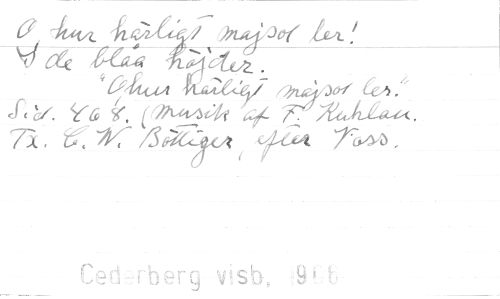 O, hur härligt majsol ler!
I de blåa höjder.
"O hur härligt majsol ler."
Sid. 408. (Musik af F. Kuhlau.
Tx. C. W. Böttiger, efter Voss.
Cederberg visb,